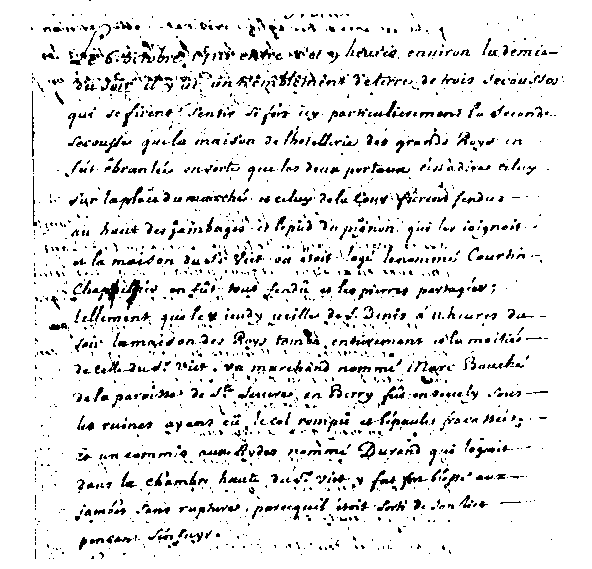 Le 6 Octobre 1711 entre 8 et 9 heures environ la demie
du soir il y eut un tremblement de terre de trois secousses
qui se firent sentir si fort icy particulierement la seconde
secousse que la maison de lhotellerie des grands Roys en
fut ébranlée en sorte que les deux portaux c'est à dire celuy
sur la place du marché et celuy de la Cour furent fendus
au haut des jambages et le pied du pignon qui les joignoit
et la maison du Sr. Viet ou étoit logé le nommé Courtin
Chappellier en fut tout fendu et les pierres partagées;
tellement que le jeudy veille de St. Denis à 11 heures du
soir la maison des Roys tomba entierement et la moitiée
de celle du Sr. Viet. un marchand nommé Marc Bouché
de la parroisse de Ste. Severe en Berry fut enseuely sous
les ruines ayant eü le col rompu et l'épaule fracassée;
et un commis aux Aydes nommé Durand qui logeoit
dans la chambre haute du Sr. Viet y fut fort blessé aux
jambes sans ruptures, parcequil étoit sorti de son lict
pensant s'enfuyr.